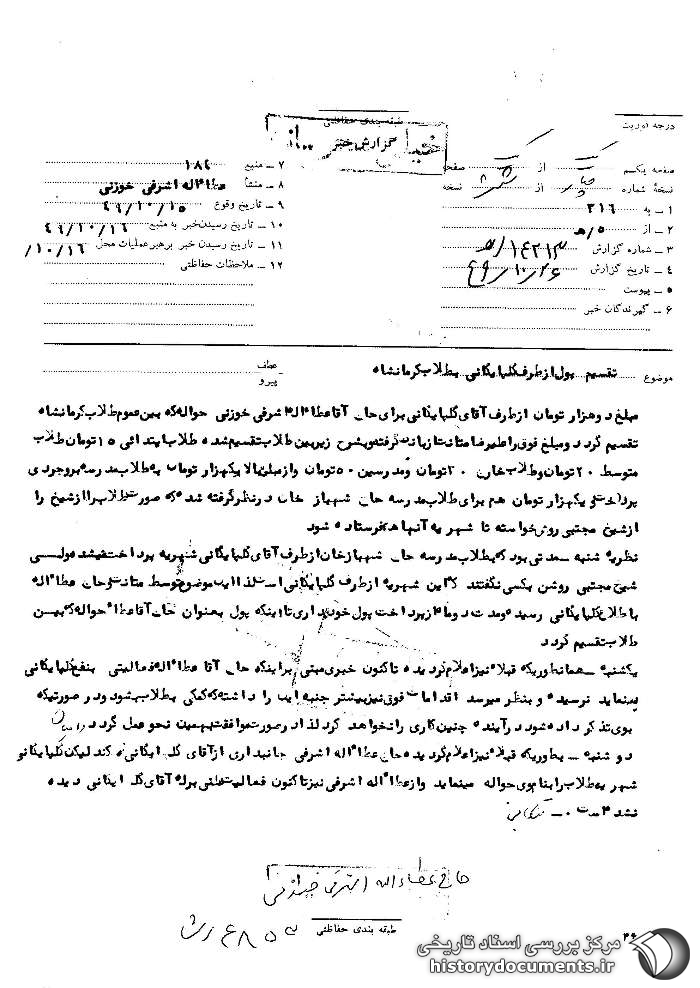 درجه فوریت
طبقه بندی حفاظتی
گزارش خبر
صفحه یکم از صفحه
نسخهٔ شماره از نسخه
۱ - به ۳۱۶
۲ - از ۵/ه
۳ - شماره گزارش ۱۴۲۱۳/ه
۴ - تاریخ گزارش
۵ - پیوست
۶ - گیرندگان خبر
۷ - منبع ۱۸۴
۸ - منشأ عطااله اشرفی خوزنی
۹ - تاریخ وقوع ۴۹/۱۰/۱۵
۱۰ - تاریخ رسیدن خبر به منبع ۴۹/۱۰/۱۶
۱۱ - تاریخ رسیدن خبر برهبر عملیات محل ۱۰/۱۶/
۱۲ - ملاحظات حفاظتی
موضوع تقسیم پول از طرف گلپایگانی بطلاب کرمانشاه
عطف
پیرو
مبلغ دوهزار تومان از طرف آقای گلپایگانی برای حاج آقا عطااله اشرفی خوزنی حواله که بین عموم طلاب کرمانشاه
تقسیم گردد و مبلغ فوق را علیرضا گرفته و بشرح زیر بین طلاب تقسیم شده طلاب ابتدائی ۱۵ تومان طلاب
متوسط ۲۰ تومان و طلاب خارج ۳۰ تومان و مدرسین ۵۰ تومان و از مبلغ بالا یکهزار تومان به طلاب مدرسه بروجردی
پرداخت و یکهزار تومان هم برای طلاب مدرسه حاج شهباز خان در نظر گرفته شد که صورت طلاب را از شیخ را
از شیخ مجتبی روشن خواسته تا شهریه آنها هم فرستاده شود
نظریه شنبه مدتی بود که بطلاب مدرسه حاج شهباز خان از طرف آقای گلپایگانی شهریه پرداخت میشد ولی
شیخ مجتبی روشن بکسی نگفتند که این شهریه از طرف گلپایگانی است لذا این موضوع توسط و حاج عطااله
باطلاع گلپایگانی رسیده و مدت دو ماه از پرداخت پول خودداری تا اینکه پول بعنوان حاج آقا عطااله حواله که بین
طلاب تقسیم گردد
یکشنبه - همانطوریکه قبلا نیز اعلام گردیده تاکنون خبری مبنی بر اینکه حاج آقا عطااله فعالیتی بنفع گلپایگانی
بنماید نرسیده و بنظر میرسد اقدامات فوق نیز بیشتر جنبه را داشته که کمکی بطلاب بشود و در صورتیکه
بوی تذکر داده شود در آینده چنین کاری را نخواهد کرد لذا در صورت موافقت بهمین نحو عمل گردد
دوشنبه - بطوریکه قبلا نیز اعلام گردیده حاج عطااله اشرفی جانبداری از آقای گلپایگانی کند لیکن گلپایگانی
شهریه طلاب را بنام وی حواله مینماید و از عطااله اشرفی نیز تاکنون فعالیت علنی برله آقای گلپایگانی دیده
نشده است ۰ -
حاج عطاءالله اشرفی
طبقه بندی حفاظتی
مرکز بررسی اسناد تاریخی
historydocuments.ir